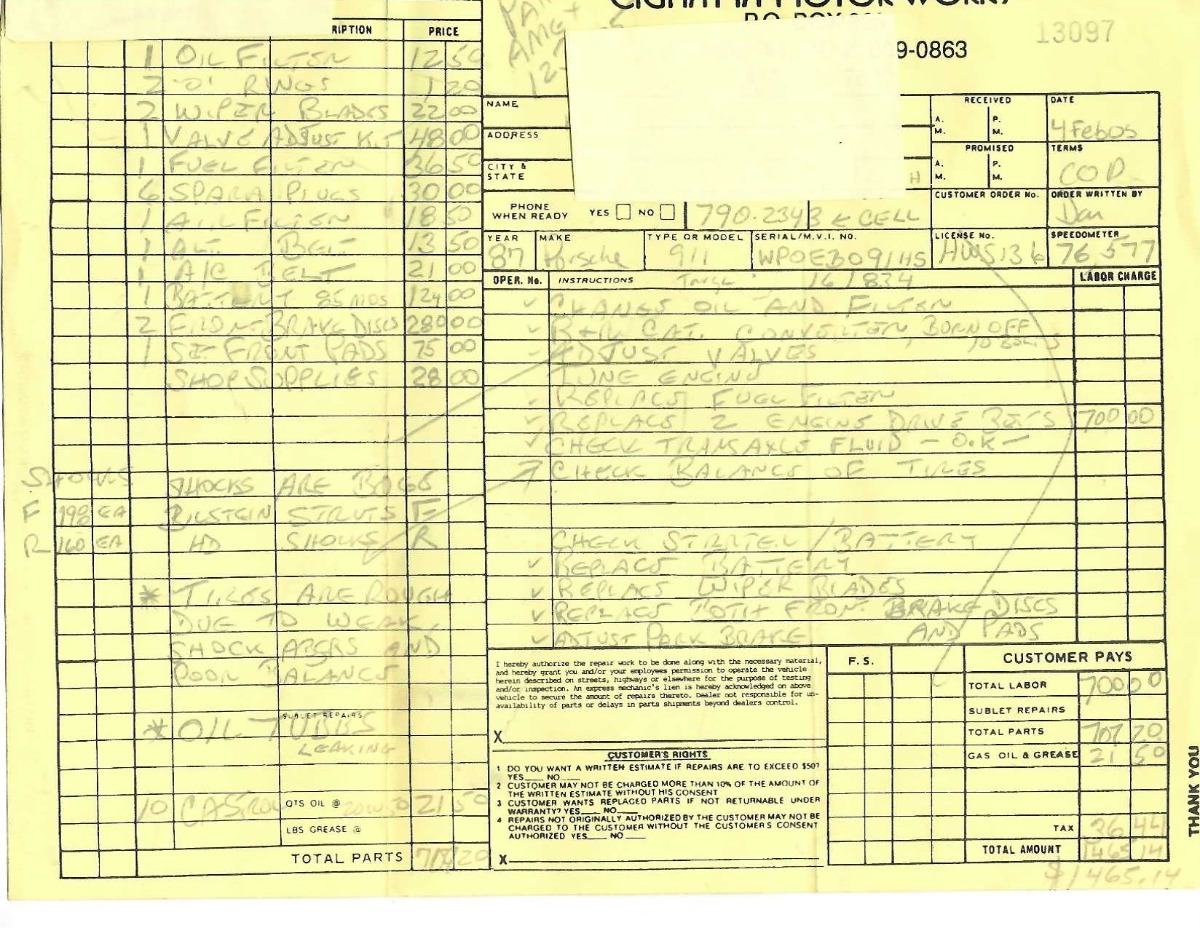 13097
9-0863
RIPTION PRICE
1 OIL FILTER 12 50
2 "O" RINGS 1 20
2 WIPER BLADES 22 00
1 VALVE ADJUST KIT 48 00
1 FUEL FILTER 36 50
6 SPARK PLUGS 30 00
1 AIR FILTER 18 50
1 ALT. BELT 13 50
1 A/C BELT 21 00
1 BATTERY 85 MOS 124 00
2 FRONT BRAKE DISCS 280 00
1 SET FRONT PADS 75 00
SHOP SUPPLIES 28 00
SHOCKS SHOCKS ARE BOGE
F 198 EA BILSTEIN STRUTS F
R 160 EA HD SHOCKS R
* TIRES ARE ROUGH
DUE TO WEAK
SHOCK ABSRS AND
POOR BALANCE
SUBLET REPAIRS
* OIL TUBES
LEAKING
10 CASTROL QTS OIL @ 21 50
LBS GREASE @
TOTAL PARTS 20
NAME
ADDRESS
CITY &
STATE
H
RECEIVED
A. M. P. M.
DATE
4 Feb 05
PROMISED
A. M. P. M.
TERMS
COD
CUSTOMER ORDER No.
ORDER WRITTEN BY
Dan
PHONE
WHEN READY YES NO 790-2343 ← CELL
YEAR 87
MAKE Porsche
TYPE OR MODEL 911
SERIAL/M.V.I. NO. WPOEB091HS
161834
LICENSE No.
SPEEDOMETER 76,577
OPER. No. INSTRUCTIONS LABOR CHARGE
✓ CHANGE OIL AND FILTER
✓ R+R CAT. CONVERTER,
✓ ADJUST VALVES
TUNE ENGINE
✓ REPLACE FUEL FILTER
✓ REPLACE 2 ENGINE DRIVE BELTS 700 00
✓ CHECK TRANSAXLE FLUID - O.K -
CHECK BALANCE OF TIRES
CHECK STARTER/BATTERY
✓ REPLACE BATTERY
✓ REPLACE WIPER BLADES
✓ REPLACE BOTH FRONT BRAKE DISCS
AND PADS
✓ ADJUST PARK BRAKE
I hereby authorize the repair work to be done along with the necessary material,
and hereby grant you and/or your employees permission to operate the vehicle
herein described on streets, highways or elsewhere for the purpose of testing
and/or inspection. An express mechanic's lien is hereby acknowledged on above
vehicle to secure the amount of repairs thereto. Dealer not responsible for un-
availability of parts or delays in parts shipments beyond dealers control.
X
CUSTOMER'S RIGHTS
1 DO YOU WANT A WRITTEN ESTIMATE IF REPAIRS ARE TO EXCEED $50?
YES NO
2 CUSTOMER MAY NOT BE CHARGED MORE THAN 10% OF THE AMOUNT OF
THE WRITTEN ESTIMATE WITHOUT HIS CONSENT
3 CUSTOMER WANTS REPLACED PARTS IF NOT RETURNABLE UNDER
WARRANTY? YES NO
4 REPAIRS NOT ORIGINALLY AUTHORIZED BY THE CUSTOMER MAY NOT BE
CHARGED TO THE CUSTOMER WITHOUT THE CUSTOMER'S CONSENT
AUTHORIZED YES NO
X
F. S. CUSTOMER PAYS
TOTAL LABOR 700 00
SUBLET REPAIRS
TOTAL PARTS 707 20
GAS OIL & GREASE 21 50
TAX 36 44
TOTAL AMOUNT 1465 14
$1465.14
THANK YOU